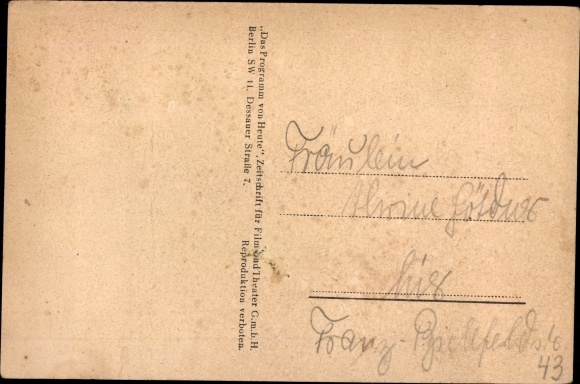 „Das Programm von Heute“, Zeitschrift für Film und Theater G.m.b.H.
Berlin SW 11, Dessauer Straße 7.
Reproduktion verboten.
Fräulein
hier
Franz-
43